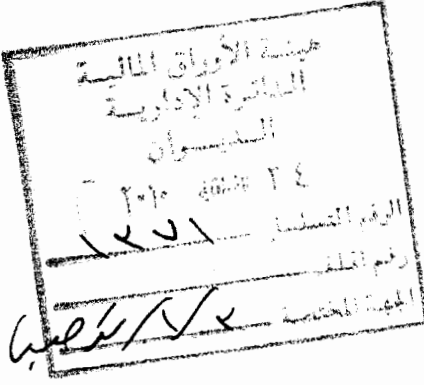 هيئة الأوراق المالية
الدائرة الإدارية
الديوان
٢٤ ٢٠١٠
الرقم المتسلسل ١٣٧١
رقم الملف
الجهة المختصة